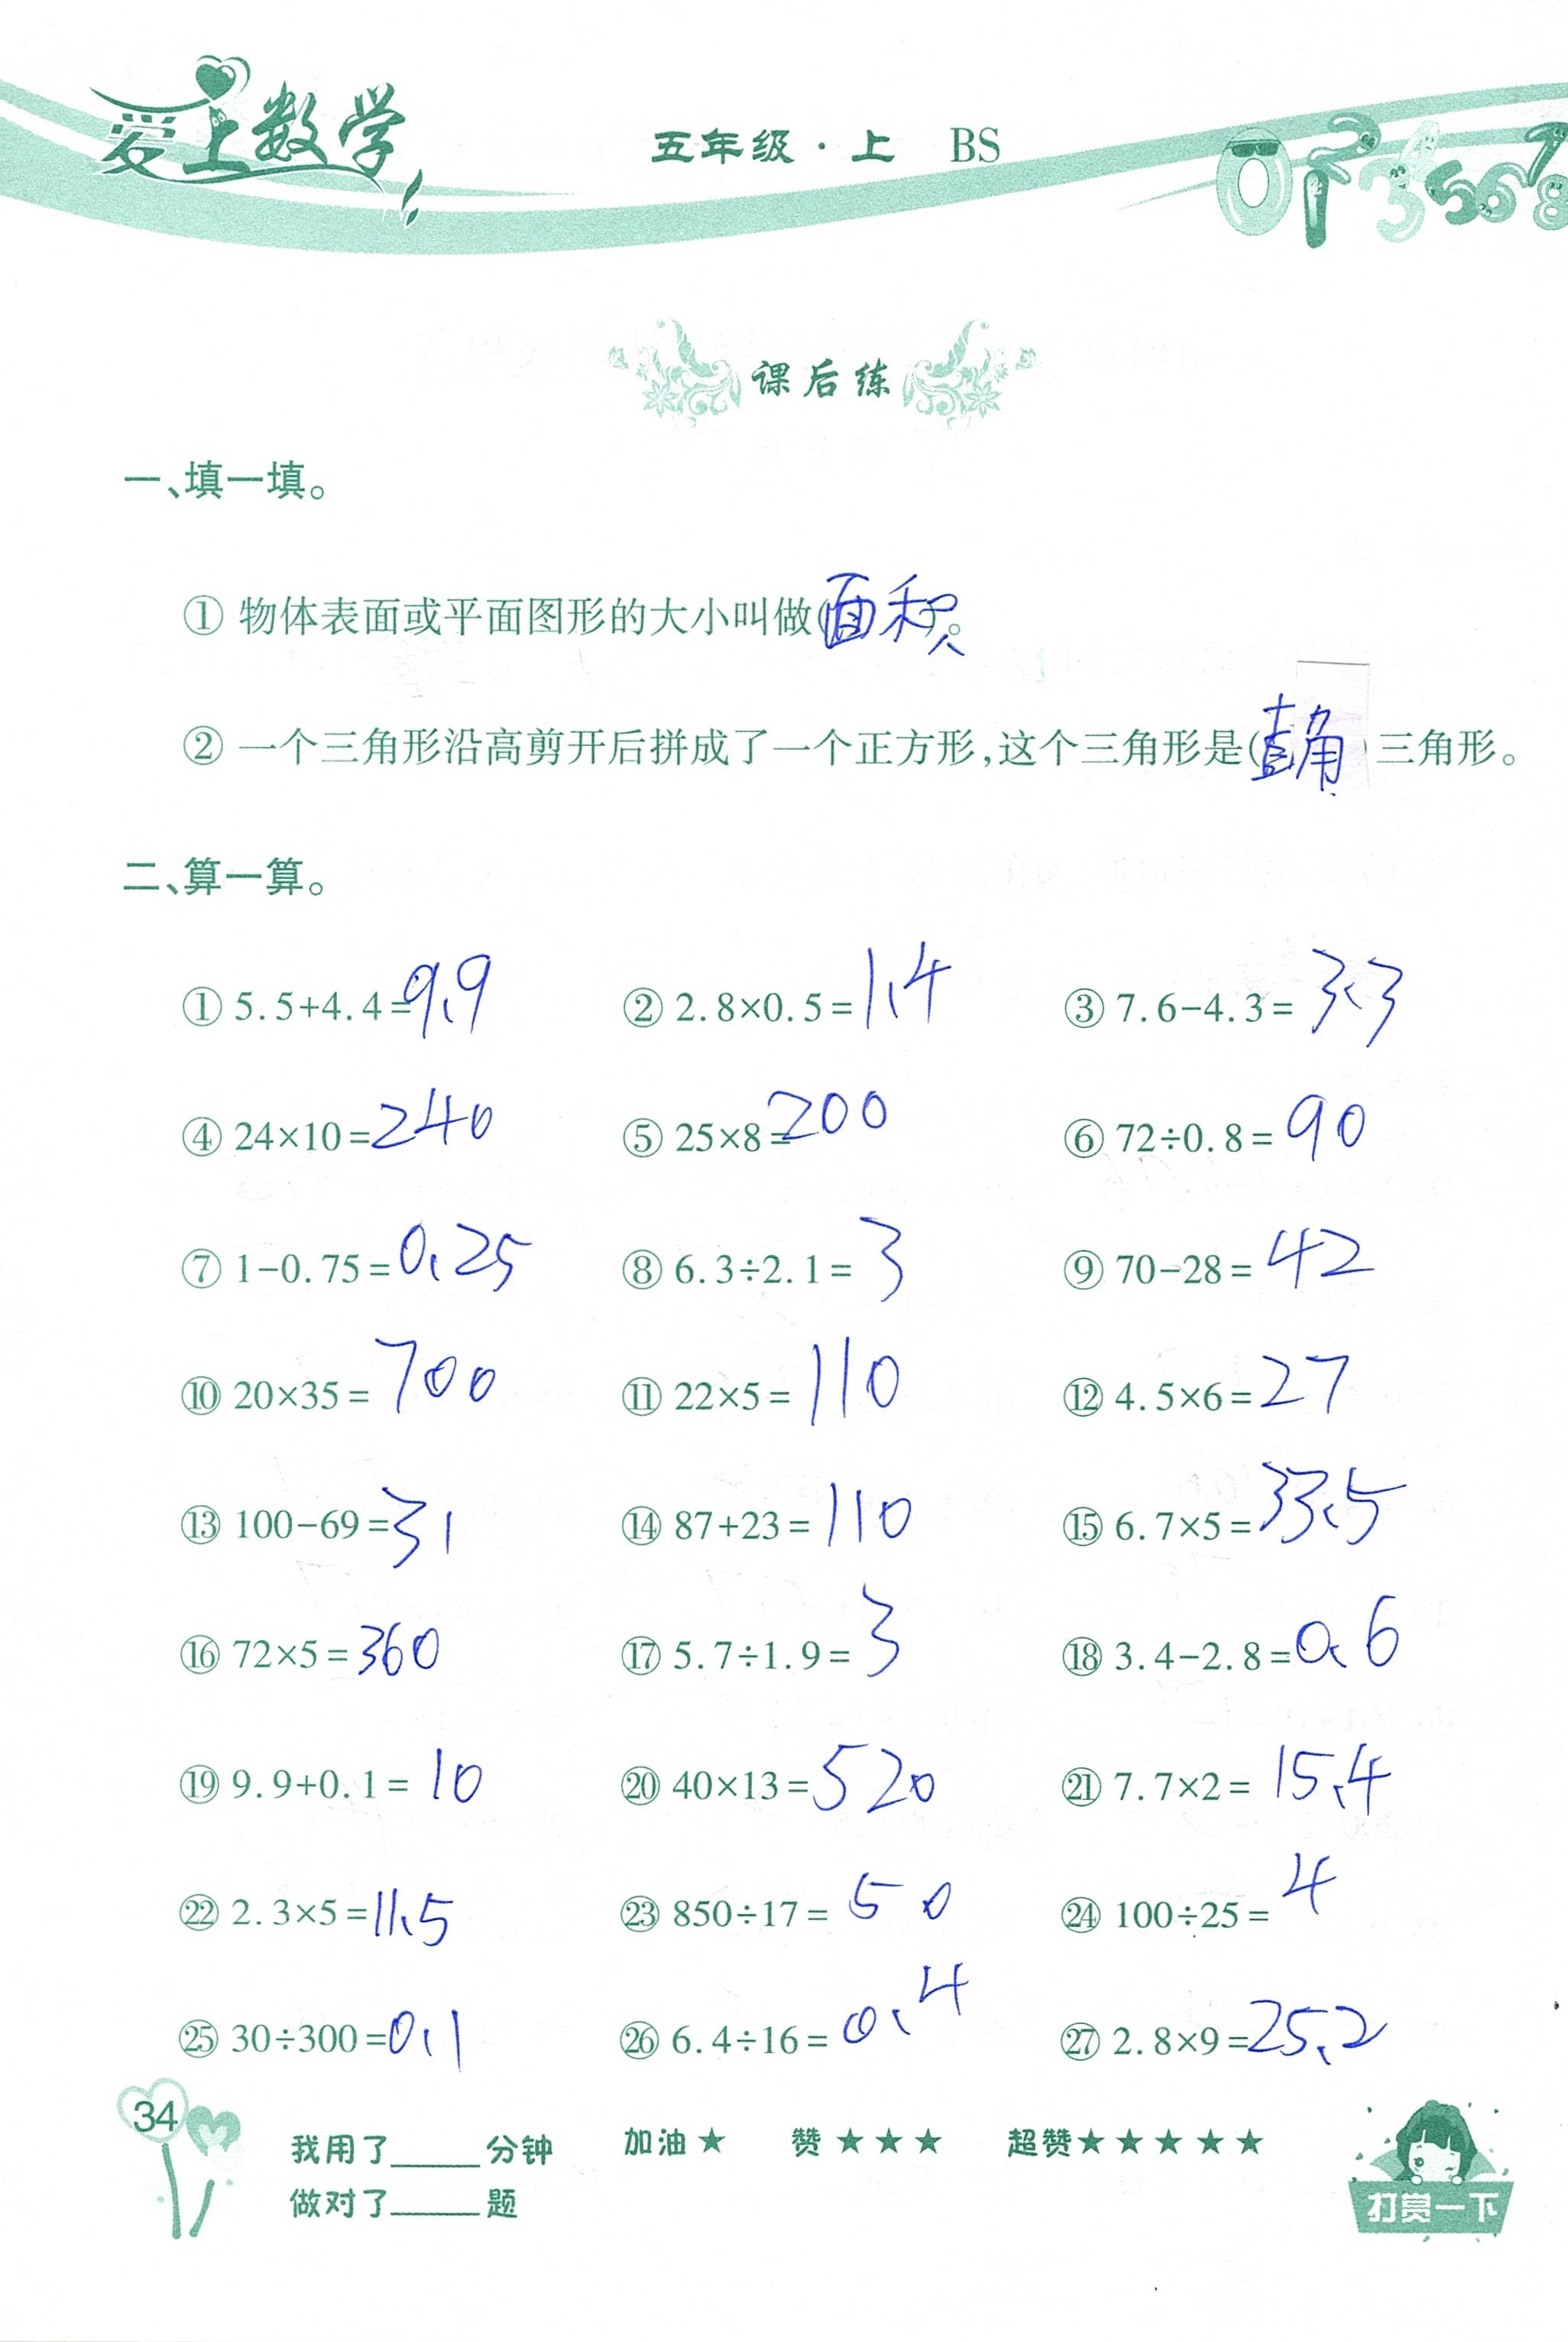 爱上数学 五年级·上 BS
课后练
一、填一填。
① 物体表面或平面图形的大小叫做(面积)。
② 一个三角形沿高剪开后拼成了一个正方形,这个三角形是(直角)三角形。
二、算一算。
① 5.5+4.4=9.9 ② 2.8×0.5=1.4 ③ 7.6-4.3=3.3
④ 24×10=240 ⑤ 25×8=200 ⑥ 72÷0.8=90
⑦ 1-0.75=0.25 ⑧ 6.3÷2.1=3 ⑨ 70-28=42
⑩ 20×35=700 ⑪ 22×5=110 ⑫ 4.5×6=27
⑬ 100-69=31 ⑭ 87+23=110 ⑮ 6.7×5=33.5
⑯ 72×5=360 ⑰ 5.7÷1.9=3 ⑱ 3.4-2.8=0.6
⑲ 9.9+0.1=10 ⑳ 40×13=520 ㉑ 7.7×2=15.4
㉒ 2.3×5=11.5 ㉓ 850÷17=50 ㉔ 100÷25=4
㉕ 30÷300=0.1 ㉖ 6.4÷16=0.4 ㉗ 2.8×9=25.2
34
我用了____分钟 加油★ 赞★★★ 超赞★★★★★
做对了____题
打赏一下